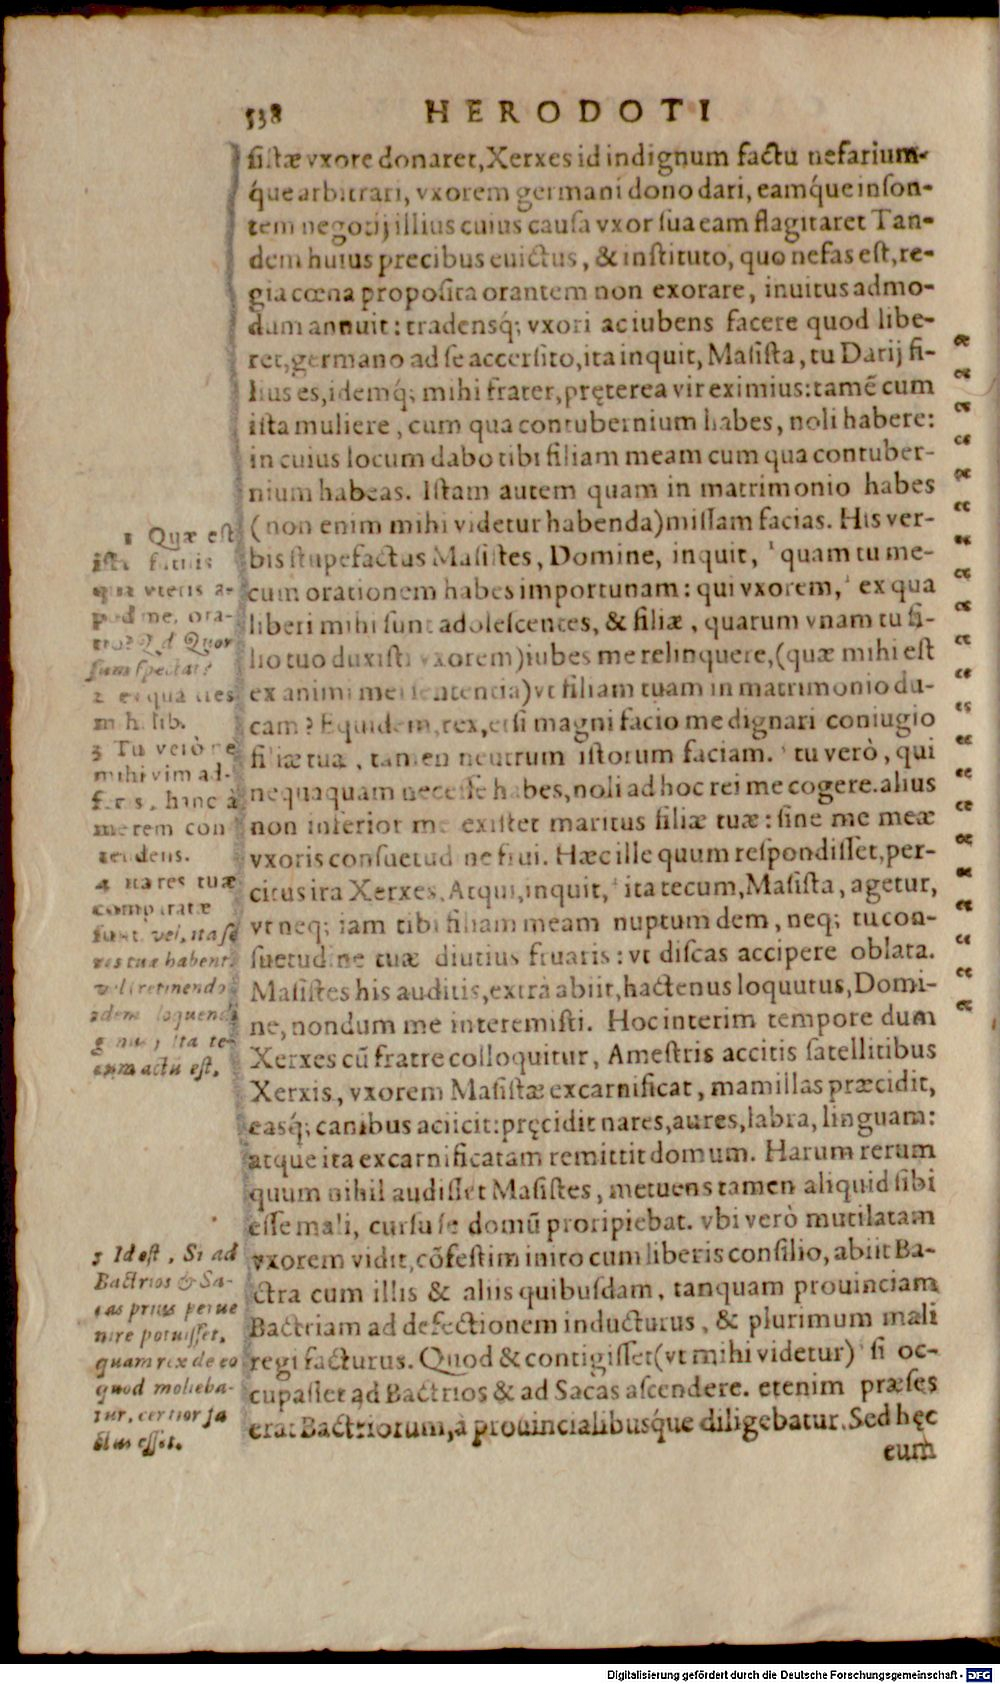 538 HERODOTI
sistæ vxore donaret, Xerxes id indignum factu nefarium-
q́ue arbitrari, vxorem germani dono dari, eamq́ue inson-
tem negotij illius cuius causa vxor sua eam flagitaret Tan-
dem huius precibus euictus, & instituto, quo nefas est, re-
gia cœna proposita orantem non exorare, inuitus admo-
dum annuit: tradensq́; vxori ac iubens facere quod libe-
ret, germano ad se accersito, ita inquit, Masista, tu Darij fi-
lius es, idemq́; mihi frater, pręterea vir eximius: tamē cum
ista muliere, cum qua contubernium habes, noli habere:
in cuius locum dabo tibi filiam meam cum qua contuber-
nium habeas. Istam autem quam in matrimonio habes
(non enim mihi videtur habenda) missam facias. His ver-
bis stupefactus Masistes, Domine, inquit, ¹ quam tu me-
cum orationem habes importunam: qui vxorem, ² ex qua
liberi mihi sunt adolescentes, & filiæ, quarum vnam tu fi-
lio tuo duxisti vxorem) iubes me relinquere, (quæ mihi est
ex animi mei sententia) vt filiam tuam in matrimonio du-
cam? Equidem, rex, etsi magni facio me dignari coniugio
filiæ tuæ, tamen neutrum istorum faciam. ³ tu verò, qui
nequaquam necesse habes, noli ad hoc rei me cogere. alius
non inferior me existet maritus filiæ tuæ: sine me meæ
vxoris consuetudine frui. Hæc ille quum respondisset, per-
citus ira Xerxes, Atqui, inquit, ⁴ ita tecum, Masista, agetur,
vt neq; iam tibi filiam meam nuptum dem, neq; tu con-
suetudine tuæ diutius fruaris: vt discas accipere oblata.
Masistes his auditis, extrà abiit, hactenus loquutus, Domi-
ne, nondum me interemisti. Hoc interim tempore dum
Xerxes cū fratre colloquitur, Amestris accitis satellitibus
Xerxis, vxorem Masistæ excarnificat, mamillas præcidit,
easq́; canibus aciicit: pręcidit nares, aures, labra, linguam:
atque ita excarnificatam remittit domum. Harum rerum
quum nihil audisset Masistes, metuens tamen aliquid sibi
esse mali, cursu se domū proripiebat. vbi verò mutilatam
vxorem vidit, cōfestim inito cum liberis consilio, abiit Ba-
ctra cum illis & aliis quibusdam, tanquam prouinciam
Bactriam ad defectionem inducturus, & plurimum mali
regi facturus. Quod & contigisset (vt mihi videtur) ⁵ si oc-
cupasset ad Bactrios & ad Sacas ascendere. etenim præses
erat Bactriorum, a prouincialibusq́ue diligebatur. Sed hęc
eum
1 Quæ est
ista futilis
qua vteris a-
pud me, ora-
tio? Quor
sum spectat?
2 ex qua
mih. lib.
3 Tu verò ne
mihi vim ad-
feras, hinc à
me rem con
tendens.
4 ita res tuæ
comparatæ
sunt. vel, ita se
res tuæ habent.
vel retinendo
idem loquendi
genus, Ita te-
cum actū est.
5 Id est, Si ad
Bactrios & Sa-
cas prius perue
nire potuisset,
quam rex de eo
quod molieba-
tur, certior fa
ctus esset.